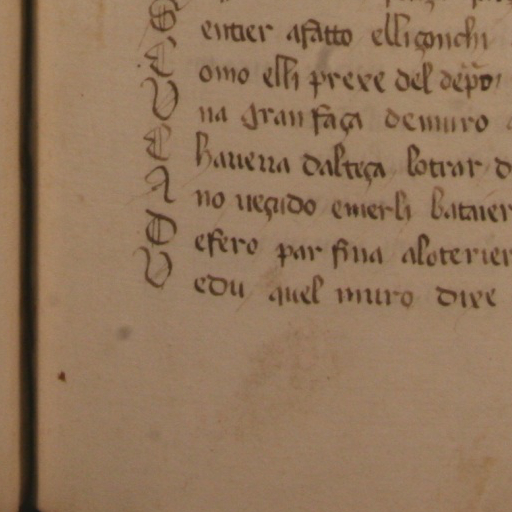 S entier afatto elli çonchi
C omo elli prexe del dep̄o
V na gran faça de muro
E haueua dalteça lotrar d
A no ueçudo emerli bataier
D efero par fina aloterier
V edu quel muro dixe